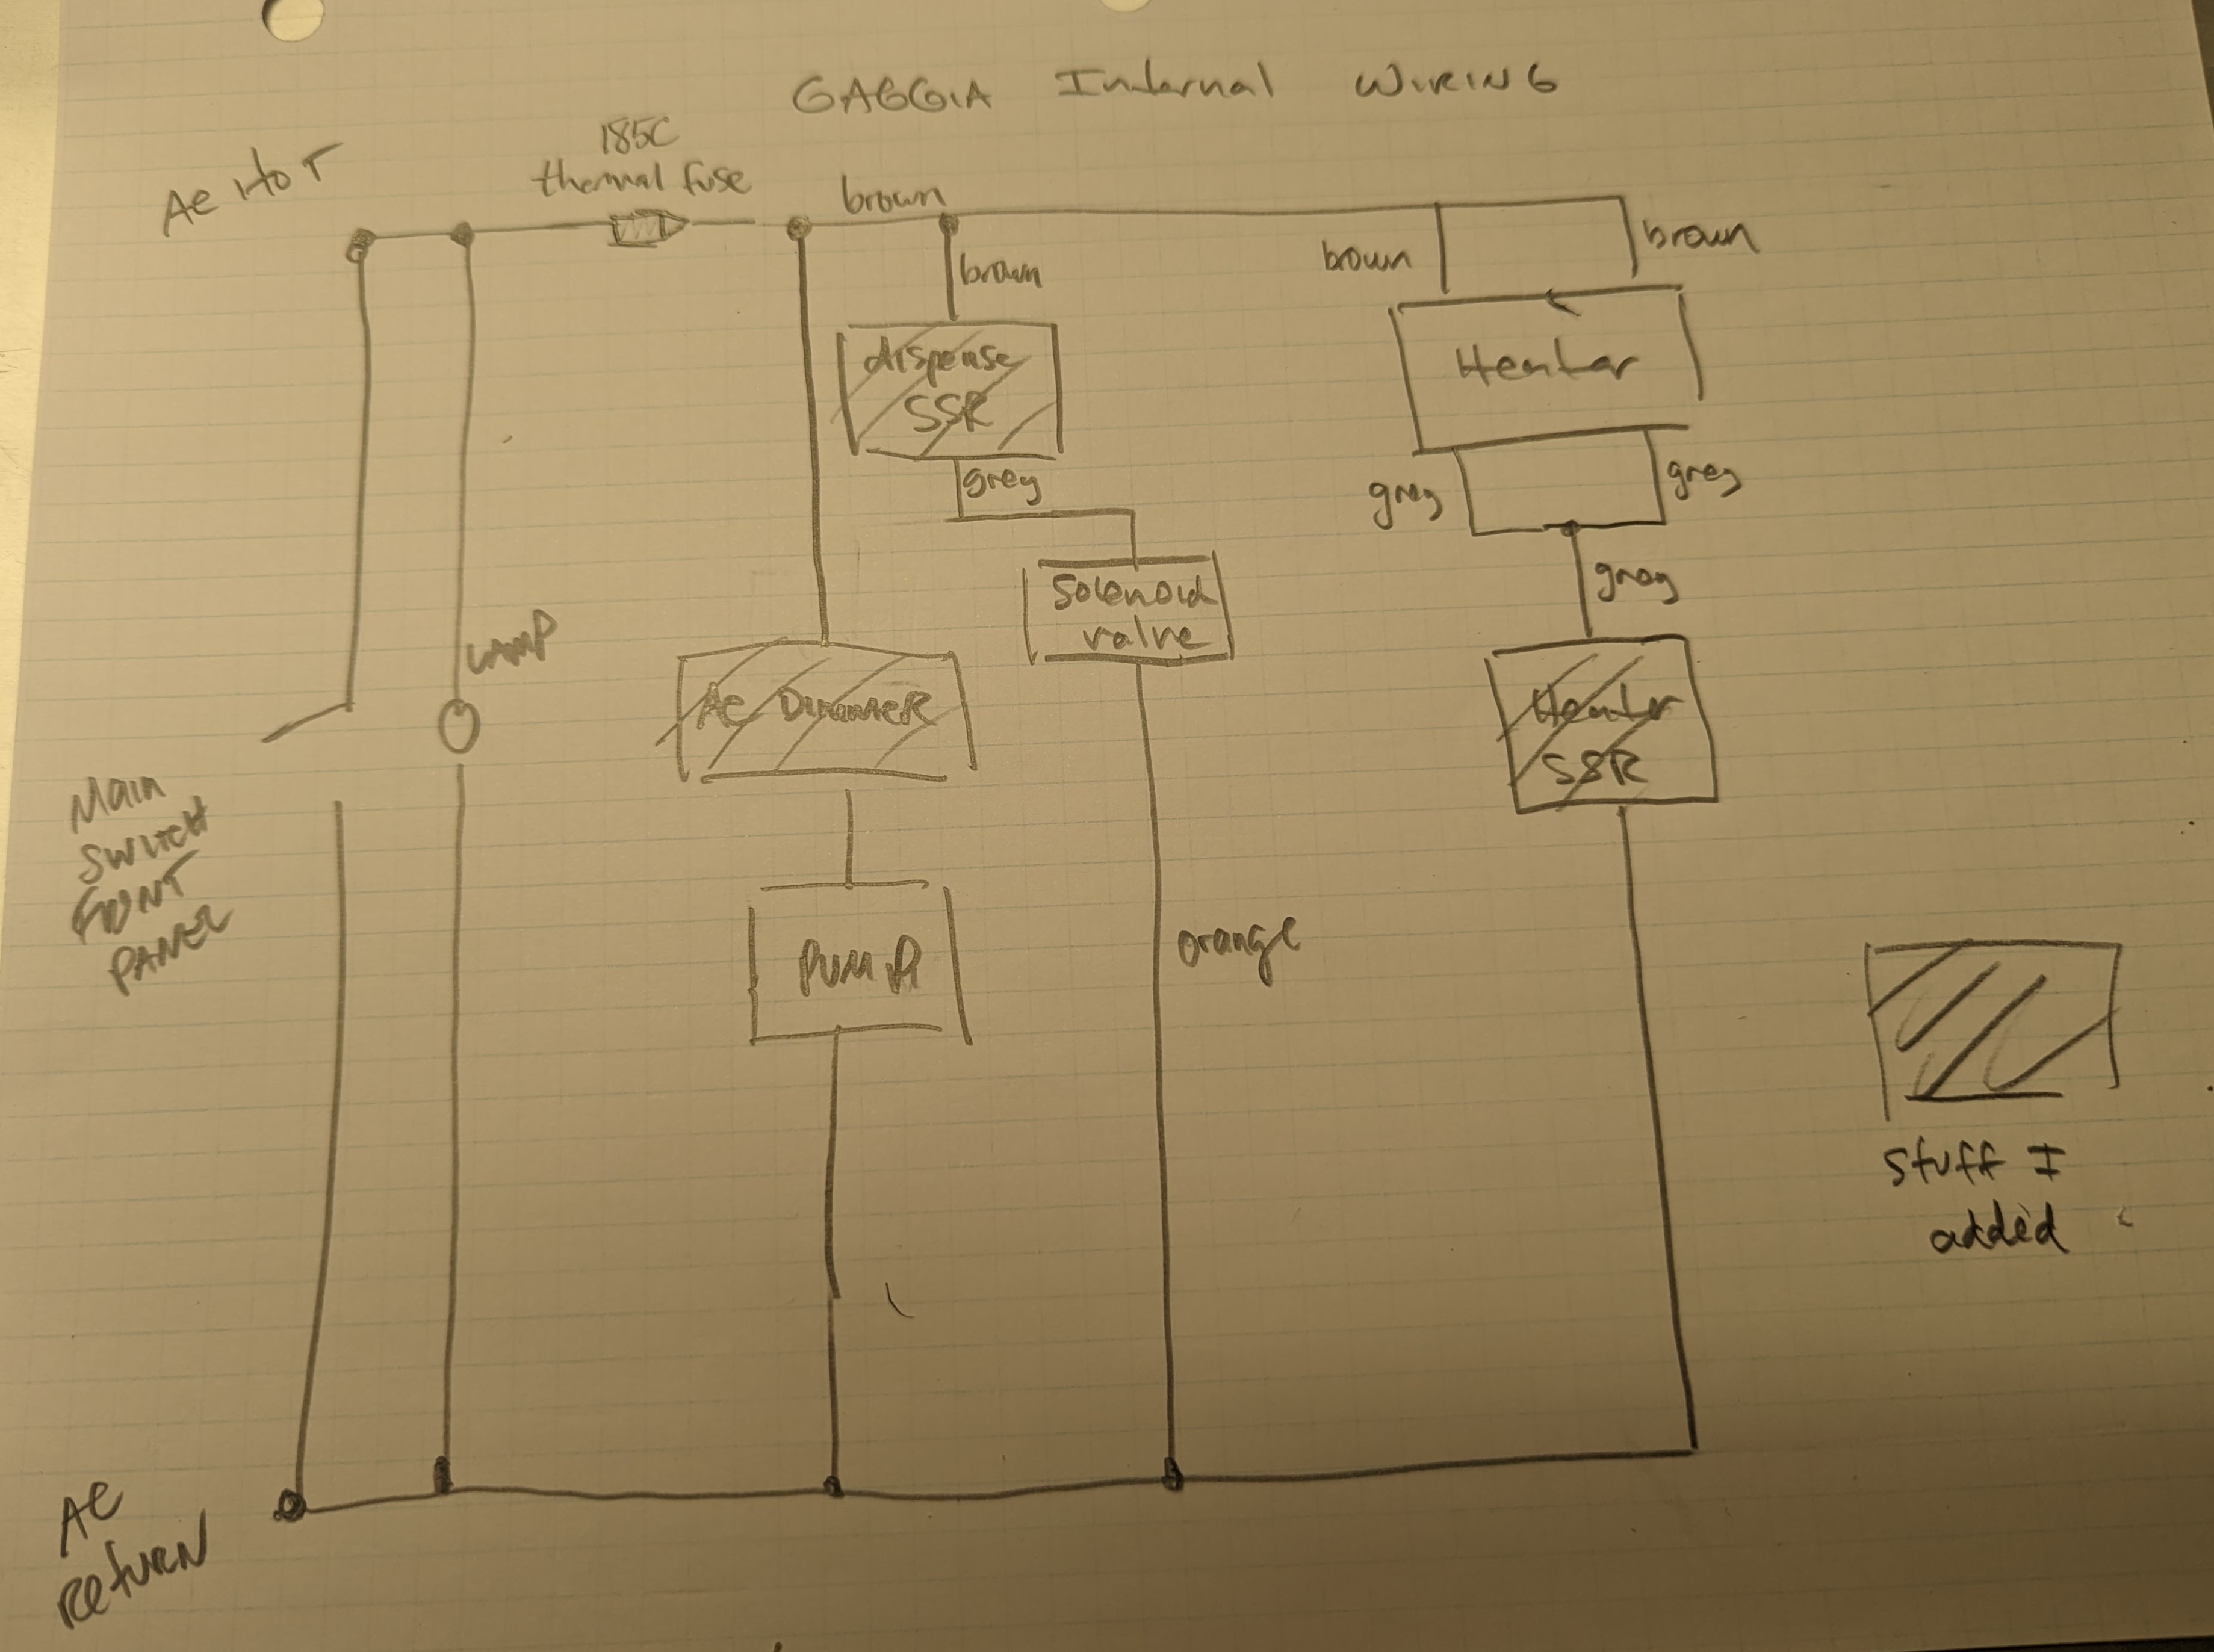 GAGGIA Internal WIRING
AC HOT
185C
thermal fuse
brown
brown
brown
brown
dispense
SSR
Heater
grey
grey
grey
grey
Solenoid
valve
LAMP
AC DIMMER
Heater
SSR
Main
SWITCH
FRONT
PANEL
PUMP
orange
stuff I
added
AC
RETURN